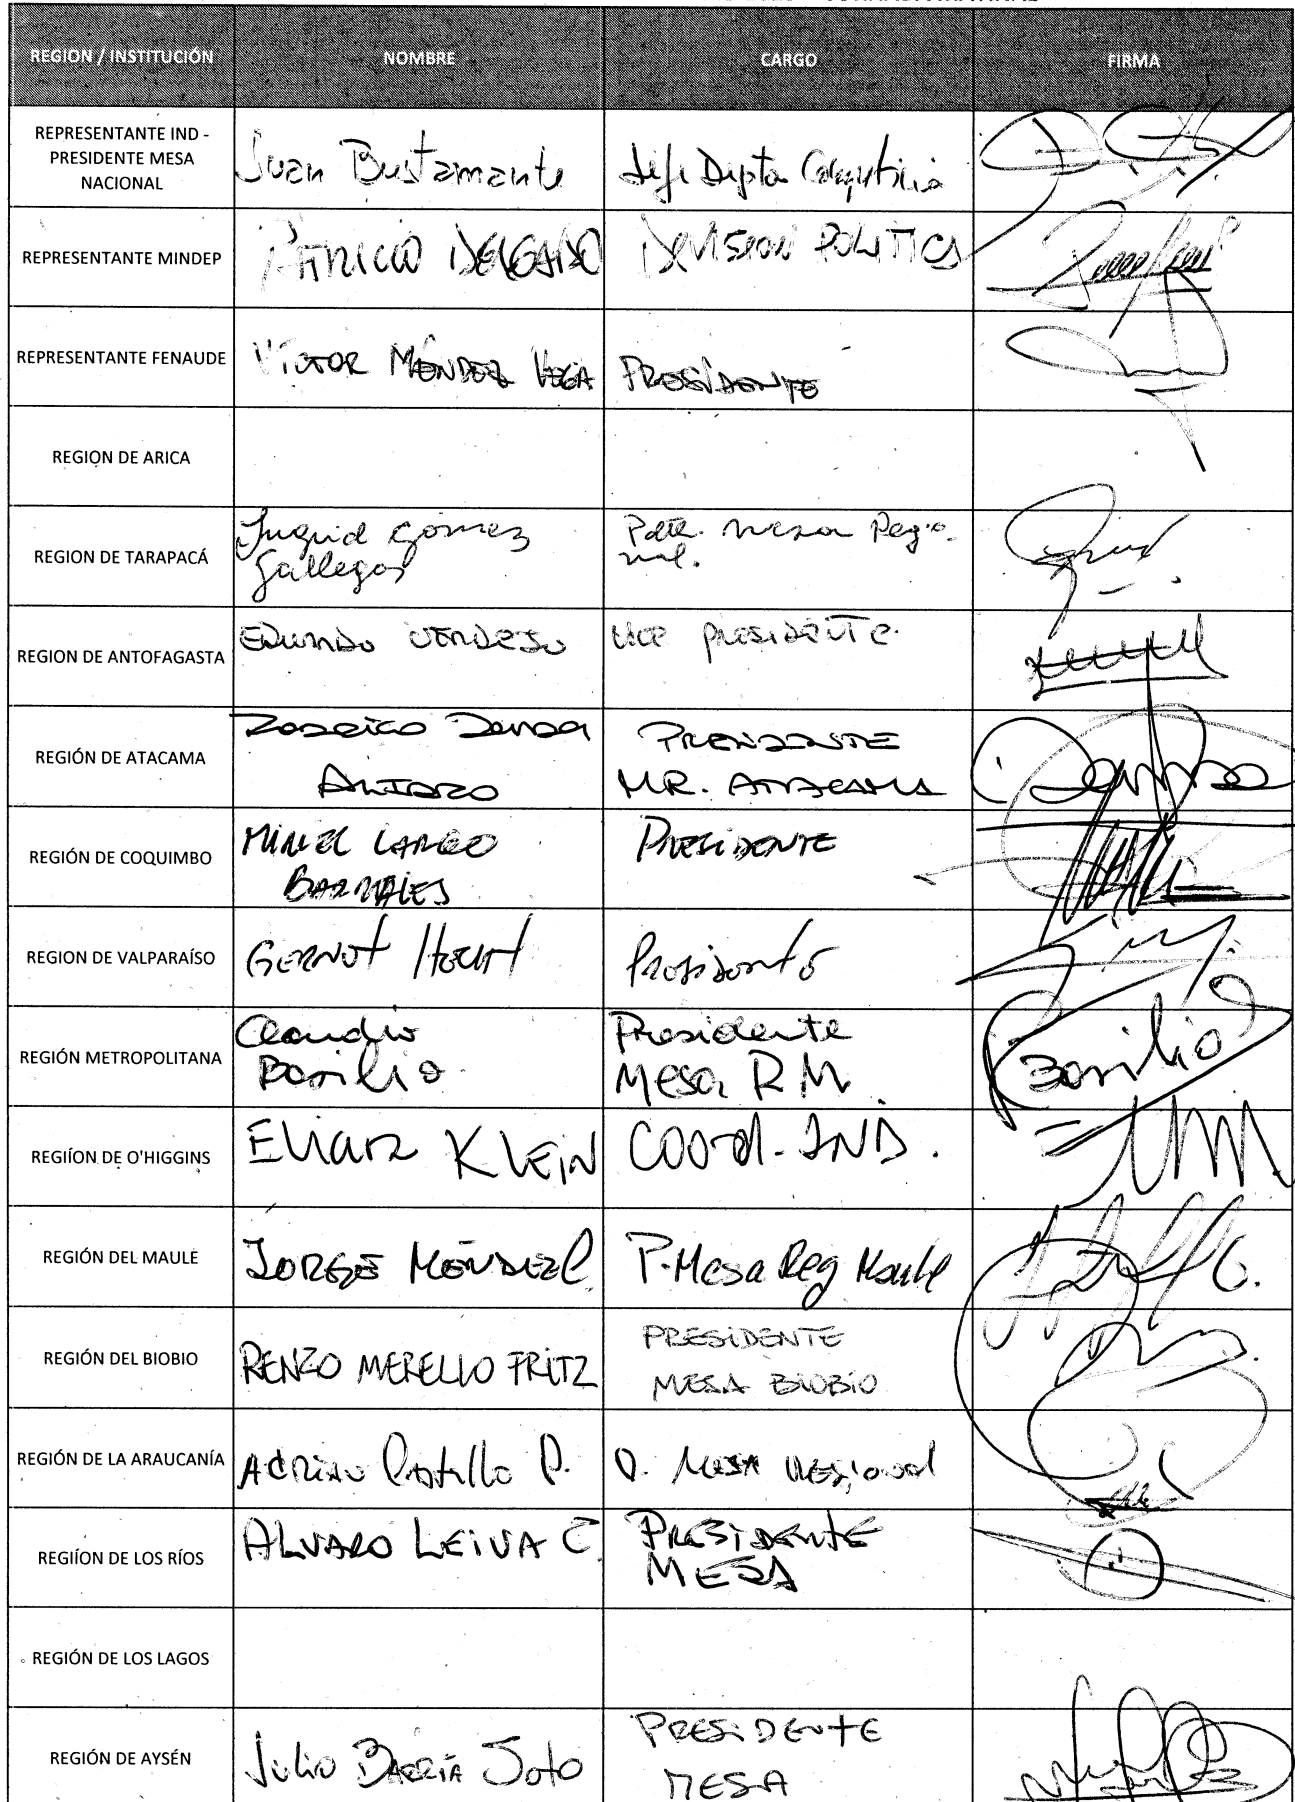 REGION / INSTITUCIÓN NOMBRE CARGO FIRMA
REPRESENTANTE IND -
PRESIDENTE MESA
NACIONAL
Juan Bustamante Jefe Depto
REPRESENTANTE MINDEP PATRICIO DELGADO DIVISION POLITICA
REPRESENTANTE FENAUDE VICTOR MÉNDEZ VEGA PRESIDENTE
REGION DE ARICA
REGION DE TARAPACÁ
Ingrid Gómez
Gallegos
Pdte. mesa Regio-
nal.
REGION DE ANTOFAGASTA EDUARDO VICE PRESIDENTE
REGIÓN DE ATACAMA
PRESIDENTE
MR. ATACAMA
REGIÓN DE COQUIMBO
BARRALES
PRESIDENTE
REGION DE VALPARAÍSO GERNOT Presidente
REGIÓN METROPOLITANA
Claudio
Basilio
Presidente
Mesa RM.
Basilio
REGIÍON DE O'HIGGINS KLEIN Coord. IND.
REGIÓN DEL MAULE JORGE MÉNDEZ C. P. Mesa Reg Maule
REGIÓN DEL BIOBIO RENZO MERELLO FRITZ
PRESIDENTE
MESA BIOBIO
REGIÓN DE LA ARAUCANÍA Castillo P. P. Mesa Regional
REGIÍON DE LOS RÍOS ALVARO LEIVA C.
PRESIDENTE
MESA
REGIÓN DE LOS LAGOS
REGIÓN DE AYSÉN Julio BARRÍA Soto
PRESIDENTE
MESA